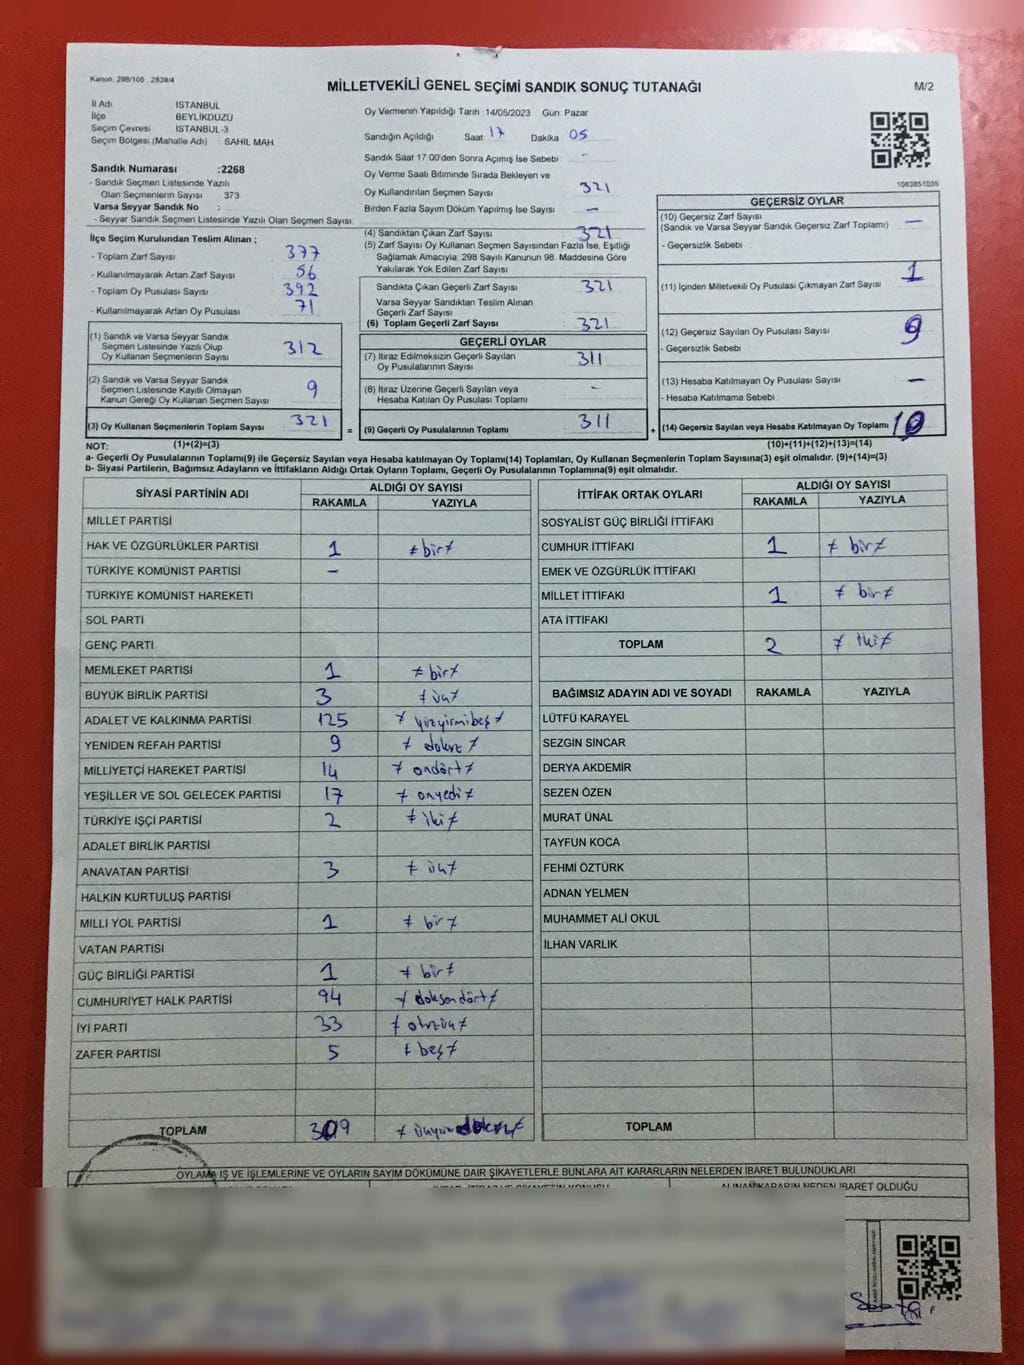 Kanon: 298/105 , 2839/4
MİLLETVEKİLİ GENEL SEÇİMİ SANDIK SONUÇ TUTANAĞI
M/2
İl Adı İSTANBUL
İlçe BEYLİKDÜZÜ
Seçim Çevresi İSTANBUL-3
Seçim Bölgesi (Mahalle Adı) : SAHİL MAH.
Sandık Numarası :2268
- Sandık Seçmen Listesinde Yazılı
Olan Seçmenlerin Sayısı 373
Varsa Seyyar Sandık No :
- Seyyar Sandık Seçmen Listesinde Yazılı Olan Seçmen Sayısı:
Oy Vermenin Yapıldığı Tarih 14/05/2023 Gün: Pazar
Sandığın Açıldığı Saat 17 Dakika 05
Sandık Saat 17:00'den Sonra Açımış İse Sebebi : -
Oy Verme Saati Bitiminde Sırada Bekleyen ve
Oy Kullandırılan Seçmen Sayısı 321
Birden Fazla Sayım Döküm Yapılmış İse Sayısı -
1083851035
İlçe Seçim Kurulundan Teslim Alınan ;
- Toplam Zarf Sayısı 377
- Kullanılmayarak Artan Zarf Sayısı 56
- Toplam Oy Pusulası Sayısı 392
- Kullanılmayarak Artan Oy Pusulası 71
(1) Sandık ve Varsa Seyyar Sandık
Seçmen Listesinde Yazılı Olup
Oy Kullanan Seçmenlerin Sayısı 312
(2) Sandık ve Varsa Seyyar Sandık
Seçmen Listesinde Kayıtlı Olmayan
Kanun Gereği Oy Kullanan Seçmen Sayısı 9
(3) Oy Kullanan Seçmenlerin Toplam Sayısı 321
(4) Sandıktan Çıkan Zarf Sayısı 321
(5) Zarf Sayısı Oy Kullanan Seçmen Sayısından Fazla İse, Eşitliği
Sağlamak Amacıyla, 298 Sayılı Kanunun 98. Maddesine Göre
Yakılarak Yok Edilen Zarf Sayısı
Sandıkta Çıkan Geçerli Zarf Sayısı 321
Varsa Seyyar Sandıktan Teslim Alınan
Geçerli Zarf Sayısı
(6) Toplam Geçerli Zarf Sayısı 321
GEÇERLİ OYLAR
(7) İtiraz Edilmeksizin Geçerli Sayılan
Oy Pusulalarının Sayısı 311
(8) İtiraz Üzerine Geçerli Sayılan veya
Hesaba Katılan Oy Pusulası Toplamı -
= (9) Geçerli Oy Pusulalarının Toplamı 311
GEÇERSİZ OYLAR
(10) Geçersiz Zarf Sayısı -
(Sandık ve Varsa Seyyar Sandık Geçersiz Zarf Toplamı)
- Geçersizlik Sebebi :
(11) İçinden Milletvekili Oy Pusulası Çıkmayan Zarf Sayısı 1
(12) Geçersiz Sayılan Oy Pusulası Sayısı 9
- Geçersizlik Sebebi :
(13) Hesaba Katılmayan Oy Pusulası Sayısı -
- Hesaba Katılmama Sebebi :
+ (14) Geçersiz Sayılan veya Hesaba Katılmayan Oy Toplamı 10
NOT: (1)+(2)=(3) (10)+(11)+(12)+(13)=(14)
a- Geçerli Oy Pusulaları Toplamı(9) ile Geçersiz Sayılan veya Hesaba katılmayan Oy Toplamı(14) Toplamları, Oy Kullanan Seçmenlerin Toplam Sayısına(3) eşit olmalıdır. (9)+(14)=(3)
b- Siyasi Partilerin, Bağımsız Adayların ve İttifakların Aldığı Ortak Oyların Toplamı, Geçerli Oy Pusulalarının Toplamına(9) eşit olmalıdır.
SİYASİ PARTİNİN ADI ALDIĞI OY SAYISI
RAKAMLA YAZIYLA
MİLLET PARTİSİ
HAK VE ÖZGÜRLÜKLER PARTİSİ 1 ≠ bir ≠
TÜRKİYE KOMÜNİST PARTİSİ -
TÜRKİYE KOMÜNİST HAREKETİ
SOL PARTİ
GENÇ PARTİ
MEMLEKET PARTİSİ 1 ≠ bir ≠
BÜYÜK BİRLİK PARTİSİ 3 ≠ üç ≠
ADALET VE KALKINMA PARTİSİ 125 ≠ yüzyirmibeş ≠
YENİDEN REFAH PARTİSİ 9 ≠ dokuz ≠
MİLLİYETÇİ HAREKET PARTİSİ 14 ≠ ondört ≠
YEŞİLLER VE SOL GELECEK PARTİSİ 17 ≠ onyedi ≠
TÜRKİYE İŞÇİ PARTİSİ 2 ≠ iki ≠
ADALET BİRLİK PARTİSİ
ANAVATAN PARTİSİ 3 ≠ üç ≠
HALKIN KURTULUŞ PARTİSİ
MİLLİ YOL PARTİSİ 1 ≠ bir ≠
VATAN PARTİSİ
GÜÇ BİRLİĞİ PARTİSİ 1 ≠ bir ≠
CUMHURİYET HALK PARTİSİ 94 ≠ doksandört ≠
İYİ PARTİ 33 ≠ otuzüç ≠
ZAFER PARTİSİ 5 ≠ beş ≠
TOPLAM 309 ≠ üçyüzdokuz ≠
İTTİFAK ORTAK OYLARI ALDIĞI OY SAYISI
RAKAMLA YAZIYLA
SOSYALİST GÜÇ BİRLİĞİ İTTİFAKI
CUMHUR İTTİFAKI 1 ≠ bir ≠
EMEK VE ÖZGÜRLÜK İTTİFAKI
MİLLET İTTİFAKI 1 ≠ bir ≠
ATA İTTİFAKI
TOPLAM 2 ≠ iki ≠
BAĞIMSIZ ADAYIN ADI VE SOYADI RAKAMLA YAZIYLA
LÜTFÜ KARAYEL
SEZGİN SİNCAR
DERYA AKDEMİR
SEZEN ÖZEN
MURAT ÜNAL
TAYFUN KOCA
FEHMİ ÖZTÜRK
ADNAN YELMEN
MUHAMMET ALİ OKUL
İLHAN VARLIK
TOPLAM
OYLAMA İŞ VE İŞLEMLERİNE VE OYLARIN SAYIM DÖKÜMÜNE DAİR ŞİKAYETLERLE BUNLARA AİT KARARLARIN NELERDEN İBARET BULUNDUKLARI
ALINAN KARARIN NEDEN İBARET OLDUĞU